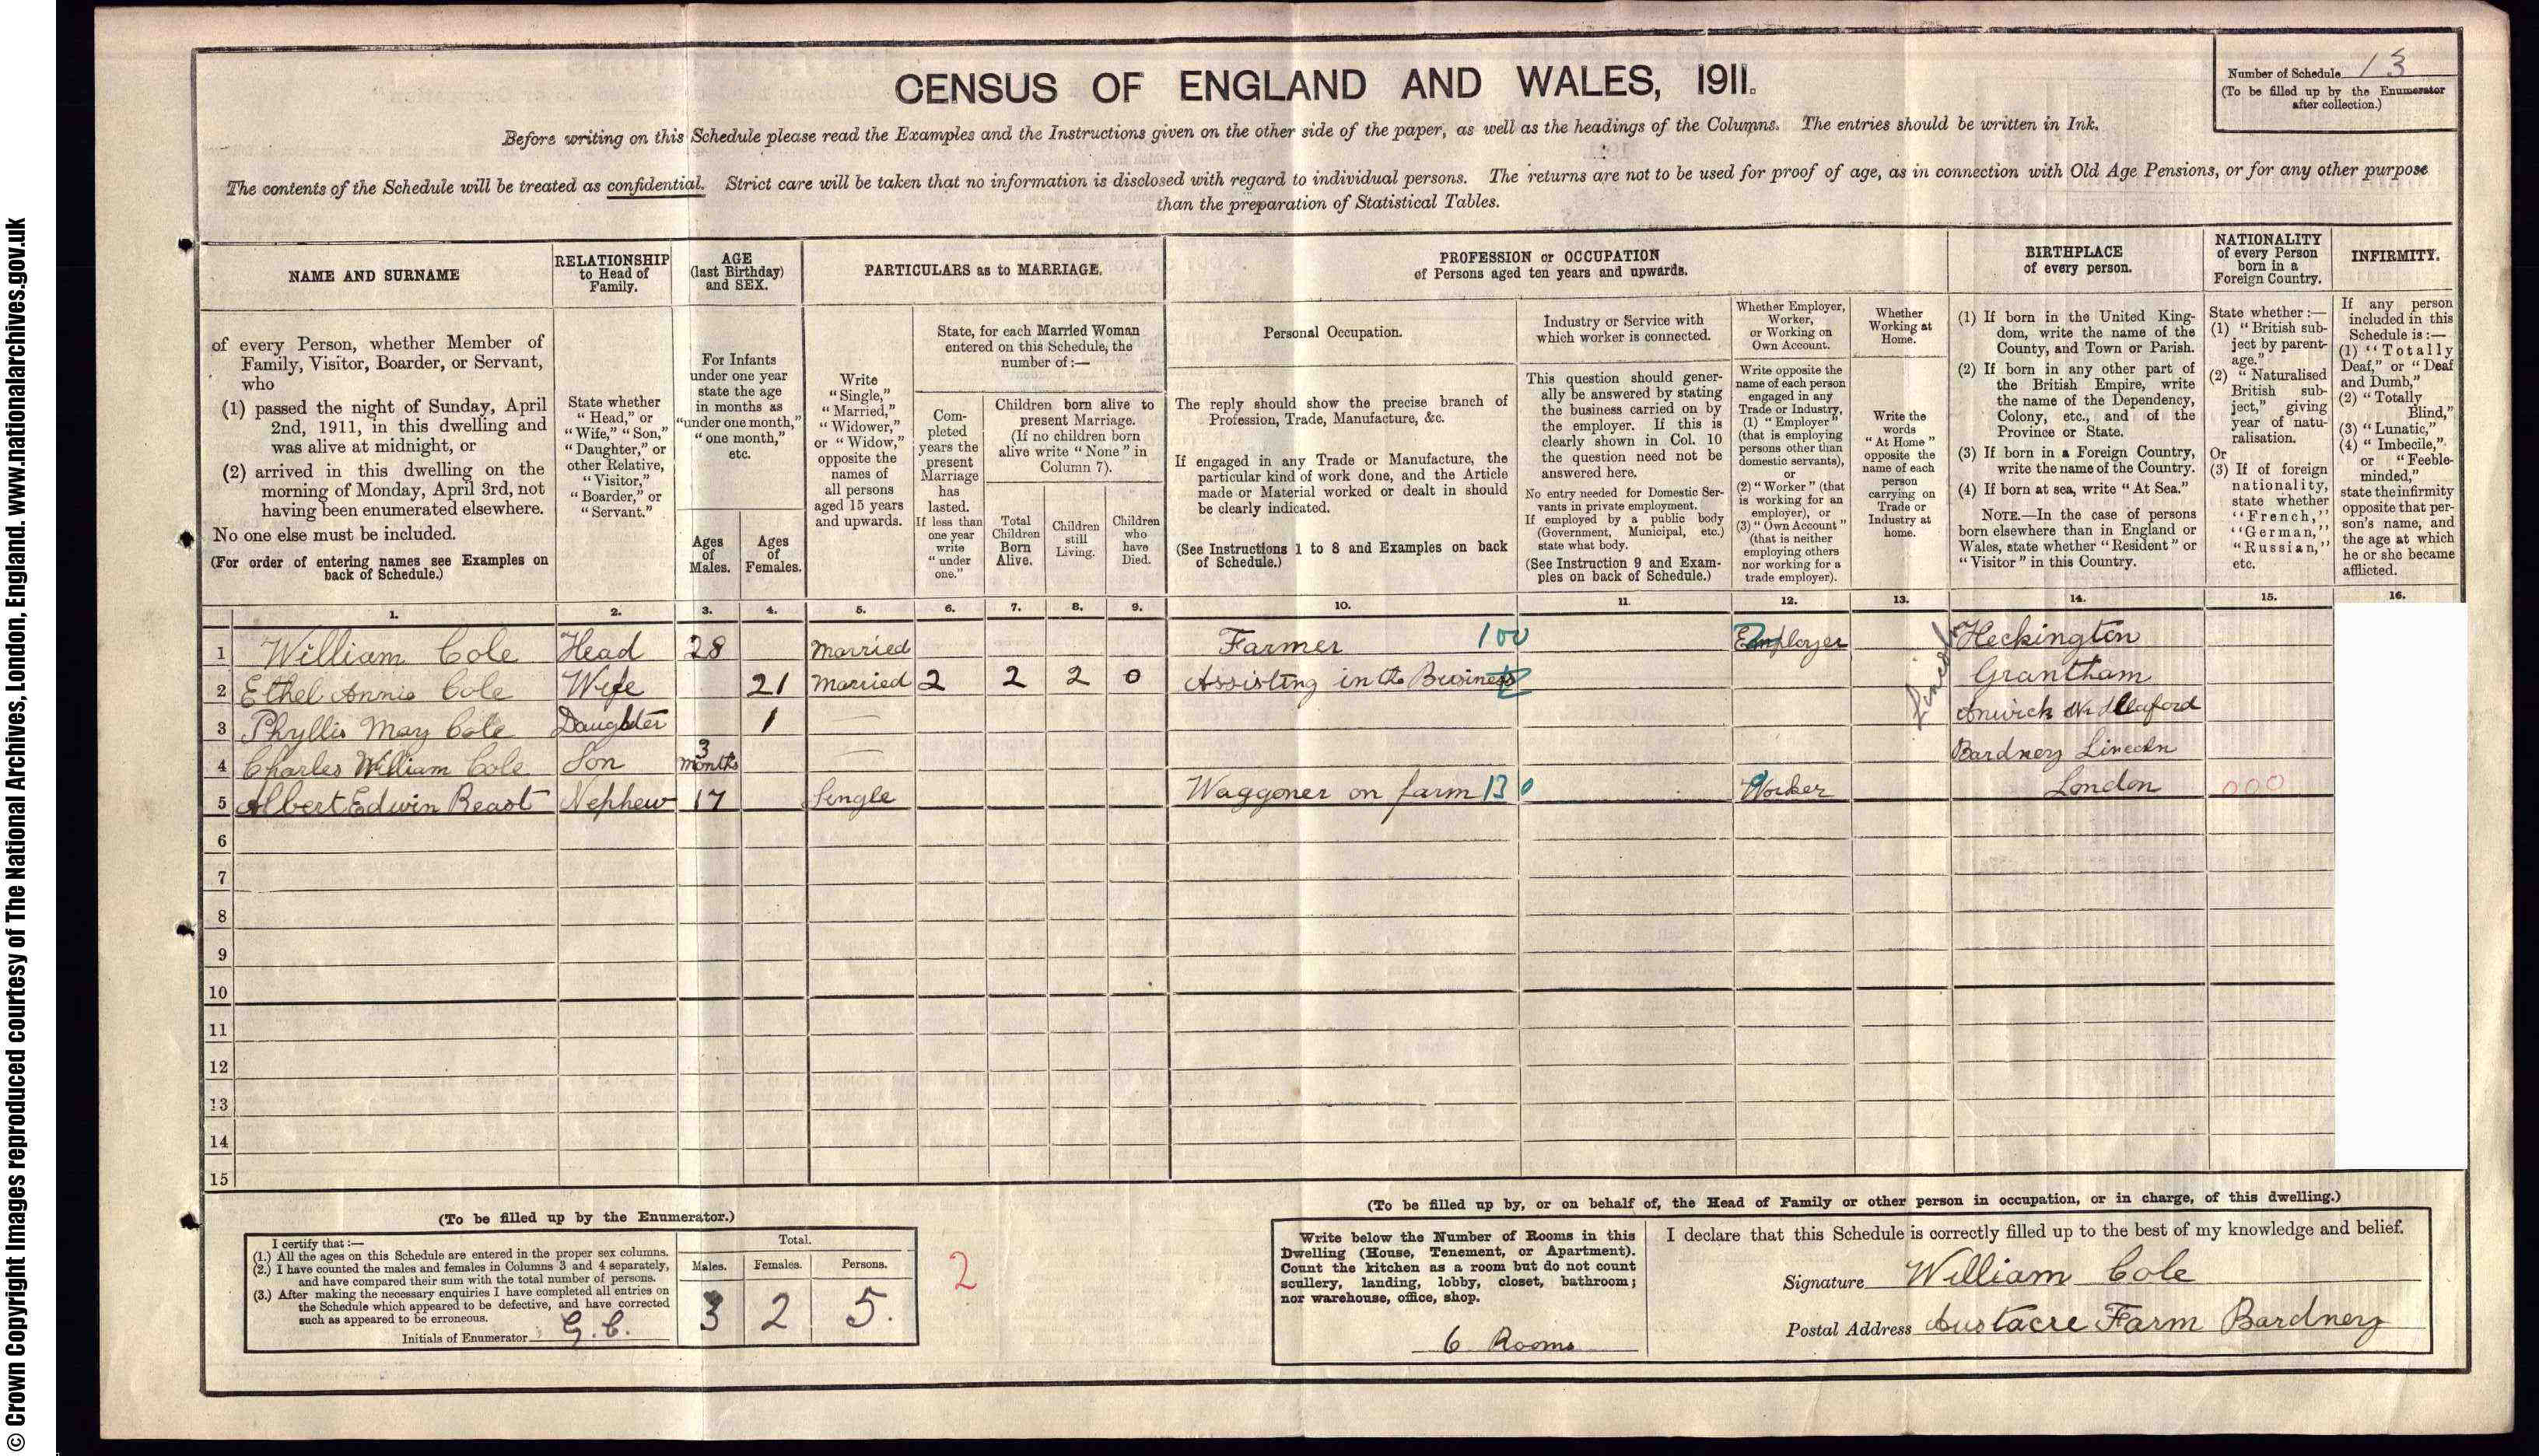 CENSUS OF ENGLAND AND WALES, 1911.
Number of Schedule 13
(To be filled up by the Enumerator
after collection.)
Before writing on this Schedule please read the Examples and the Instructions given on the other side of the paper, as well as the headings of the Columns. The entries should be written in Ink.
The contents of the Schedule will be treated as confidential. Strict care will be taken that no information is disclosed with regard to individual persons. The returns are not to be used for proof of age, as in connection with Old Age Pensions, or for any other purpose
than the preparation of Statistical Tables.
NAME AND SURNAME
of every Person, whether Member of
Family, Visitor, Boarder, or Servant,
who
(1) passed the night of Sunday, April
2nd, 1911, in this dwelling and
was alive at midnight, or
(2) arrived in this dwelling on the
morning of Monday, April 3rd, not
having been enumerated elsewhere.
No one else must be included.
(For order of entering names see Examples on
back of Schedule.)
RELATIONSHIP
to Head of
Family.
State whether
"Head," or
"Wife," "Son,"
"Daughter," or
other Relative,
"Visitor,"
"Boarder," or
"Servant."
AGE
(last Birthday)
and SEX.
For Infants
under one year
state the age
in months as
"under one month,"
"one month,"
etc.
Ages
of
Males.
Ages
of
Females.
PARTICULARS as to MARRIAGE.
Write
"Single,"
"Married,"
"Widower,"
or "Widow,"
opposite the
names of
all persons
aged 15 years
and upwards.
State, for each Married Woman
entered on this Schedule, the
number of:—
Com-
pleted
years the
present
Marriage
has
lasted.
If less than
one year
write
"under
one."
Children born alive to
present Marriage.
(If no children born
alive write "None" in
Column 7).
Total
Children
Born
Alive.
Children
still
Living.
Children
who
have
Died.
PROFESSION or OCCUPATION
of Persons aged ten years and upwards.
Personal Occupation.
The reply should show the precise branch of
Profession, Trade, Manufacture, &c.
If engaged in any Trade or Manufacture, the
particular kind of work done, and the Article
made or Material worked or dealt in should
be clearly indicated.
(See Instructions 1 to 8 and Examples on back
of Schedule.)
Industry or Service with
which worker is connected.
This question should gener-
ally be answered by stating
the business carried on by
the employer. If this is
clearly shown in Col. 10
the question need not be
answered here.
No entry needed for Domestic Ser-
vants in private employment.
If employed by a public body
(Government, Municipal, etc.)
state what body.
(See Instruction 9 and Exam-
ples on back of Schedule.)
Whether Employer,
Worker,
or Working on
Own Account.
Write opposite the
name of each person
engaged in any
Trade or Industry,
(1) "Employer"
(that is employing
persons other than
domestic servants),
or
(2) "Worker" (that
is working for an
employer), or
(3) "Own Account"
(that is neither
employing others
nor working for a
trade employer).
Whether
Working at
Home.
Write the
words
"At Home"
opposite the
name of each
person
carrying on
Trade or
Industry at
home.
BIRTHPLACE
of every person.
(1) If born in the United King-
dom, write the name of the
County, and Town or Parish.
(2) If born in any other part of
the British Empire, write
the name of the Dependency,
Colony, etc., and of the
Province or State.
(3) If born in a Foreign Country,
write the name of the Country.
(4) If born at sea, write "At Sea."
NOTE.—In the case of persons
born elsewhere than in England or
Wales, state whether "Resident" or
"Visitor" in this Country.
NATIONALITY
of every Person
born in a
Foreign Country.
State whether:—
(1) "British sub-
ject by parent-
age."
(2) "Naturalised
British sub-
ject," giving
year of natu-
ralisation.
Or
(3) If of foreign
nationality,
state whether
"French,"
"German,"
"Russian,"
etc.
INFIRMITY.
If any person
included in this
Schedule is:—
(1) "Totally
Deaf," or "Deaf
and Dumb,"
(2) "Totally
Blind,"
(3) "Lunatic,"
(4) "Imbecile,"
or "Feeble-
minded,"
state the infirmity
opposite that per-
son's name, and
the age at which
he or she became
afflicted.
1. 2. 3. 4. 5. 6. 7. 8. 9. 10. 11. 12. 13. 14. 15. 16.
1 William Cole Head 28 Married Farmer 100 Employer Heckington
2 Ethel Annie Cole Wife 21 Married 2 2 2 0 Assisting in the Business Grantham
3 Phyllis May Cole Daughter 1 — Anwick Nr Sleaford
4 Charles William Cole Son 3 months — Bardney Lincoln
5 Albert Edwin Beast Nephew 17 Single Waggoner on farm 130 Worker London 000
6
7
8
9
10
11
12
13
14
15
(To be filled up by the Enumerator.)
I certify that:—
(1.) All the ages on this Schedule are entered in the proper sex columns.
(2.) I have counted the males and females in Columns 3 and 4 separately,
and have compared their sum with the total number of persons.
(3.) After making the necessary enquiries I have completed all entries on
the Schedule which appeared to be defective, and have corrected
such as appeared to be erroneous.
Initials of Enumerator G.C.
Total.
Males. Females. Persons.
3 2 5.
2
(To be filled up by, or on behalf of, the Head of Family or other person in occupation, or in charge, of this dwelling.)
Write below the Number of Rooms in this
Dwelling (House, Tenement, or Apartment).
Count the kitchen as a room but do not count
scullery, landing, lobby, closet, bathroom;
nor warehouse, office, shop.
6 Rooms
I declare that this Schedule is correctly filled up to the best of my knowledge and belief.
Signature William Cole
Postal Address Austacre Farm Bardney
© Crown Copyright Images reproduced courtesy of The National Archives, London, England. www.nationalarchives.gov.uk